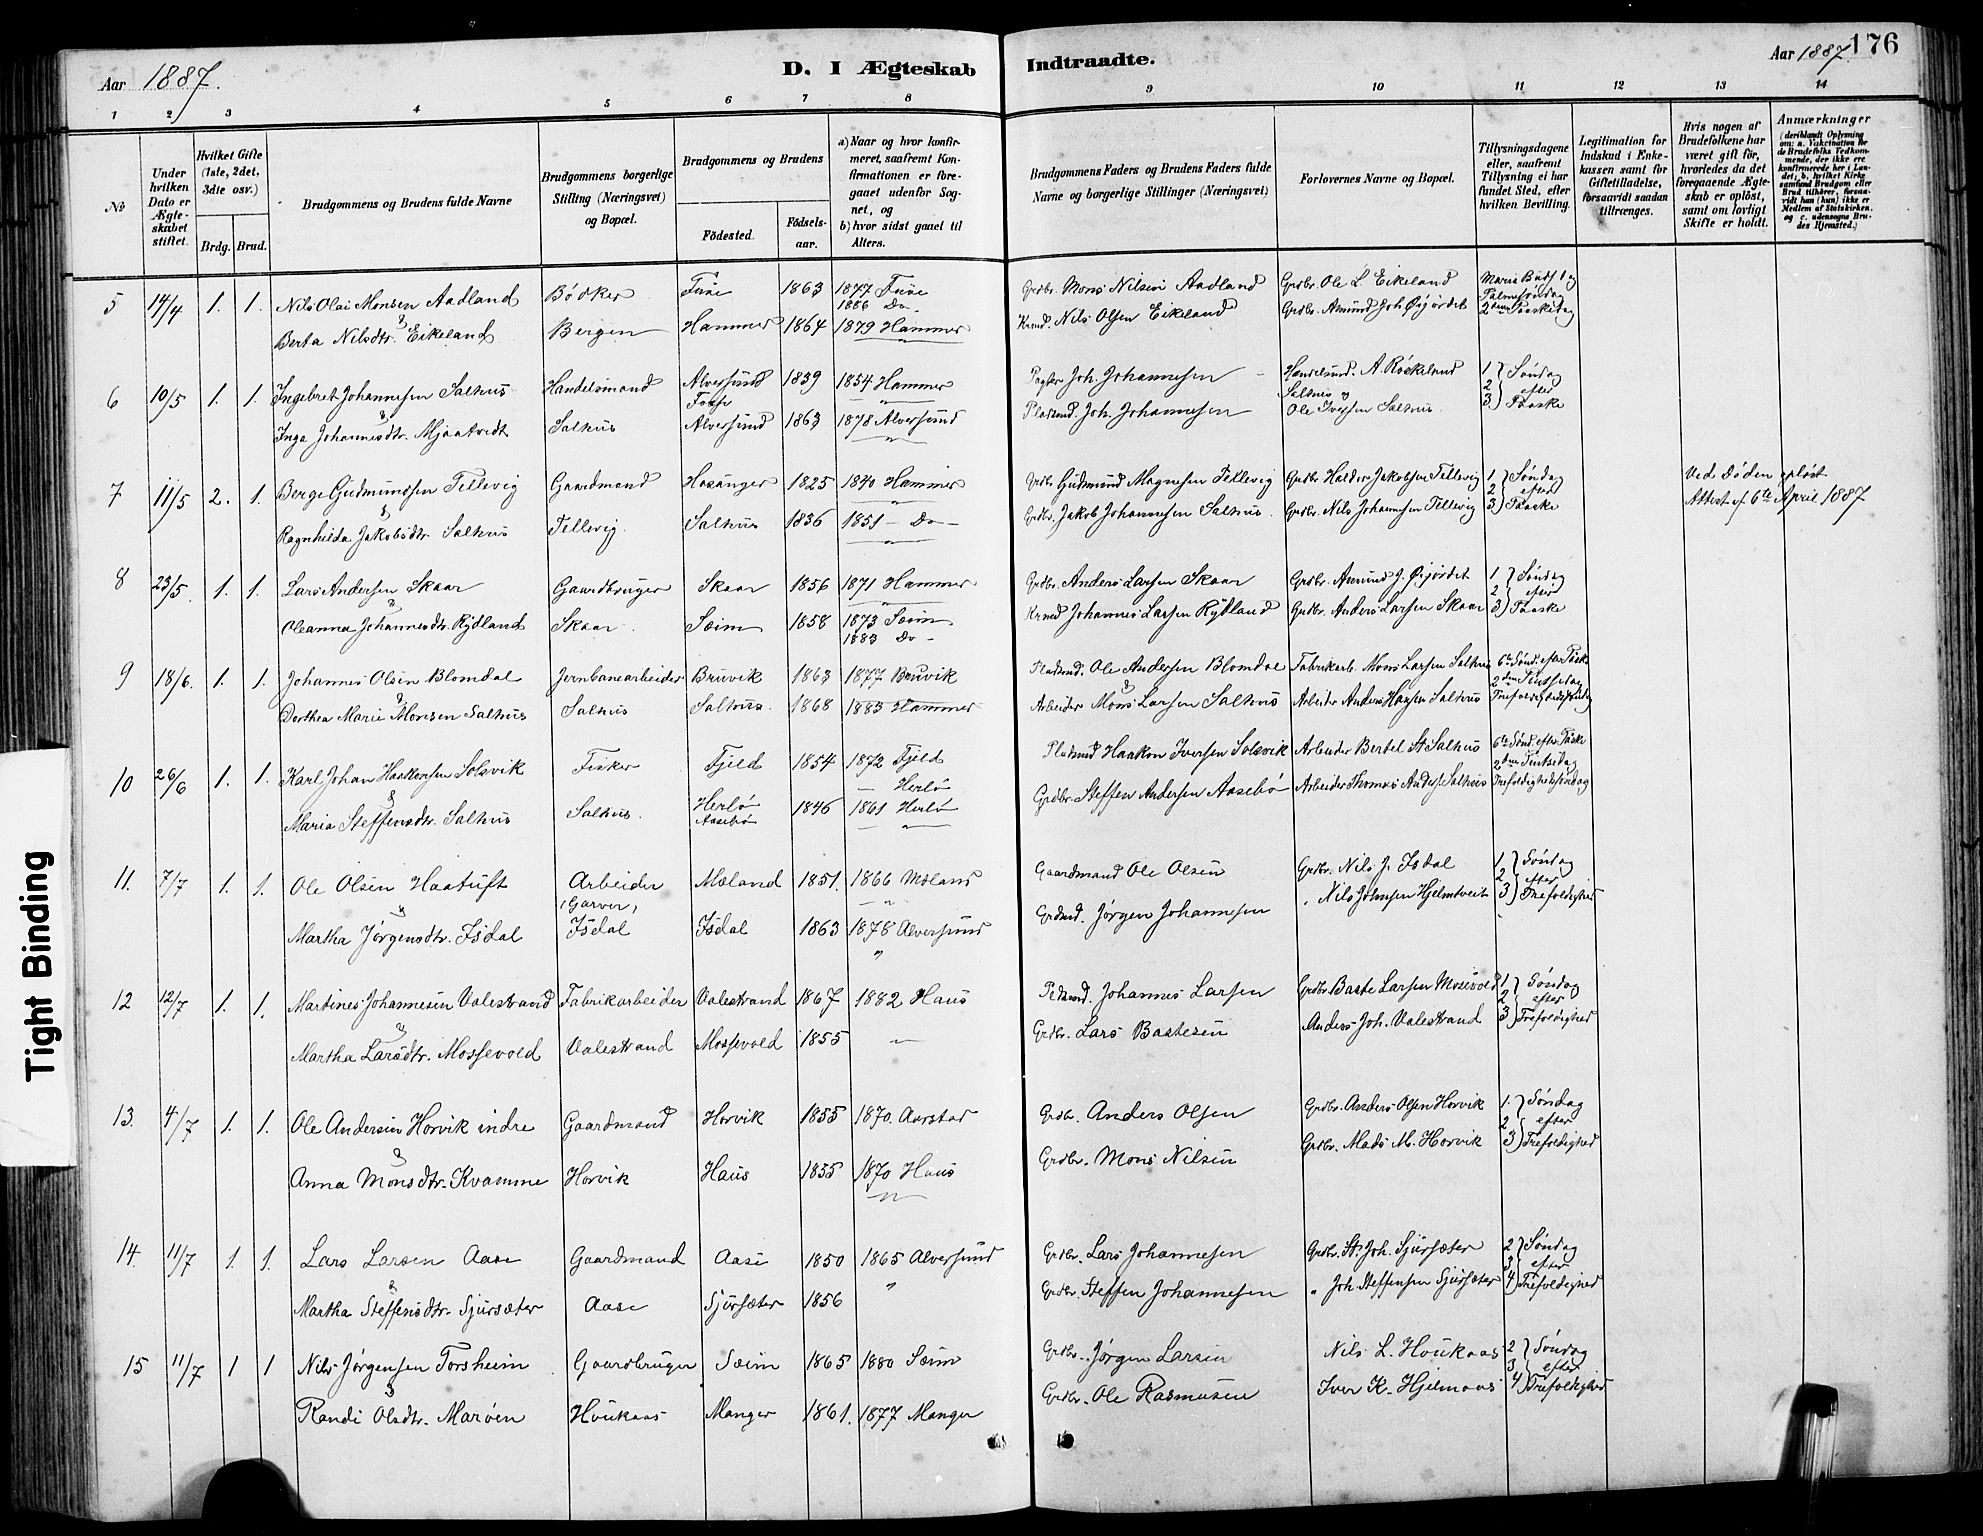 Aar 1887.
D. I Ægteskab Indtraadte.
Aar 1887. 176
1 2 3 4 5 6 7 8 9 10 11 12 13 14
№
Under hvilken Dato er Ægteskabet stiftet.
Hvilket Gifte (1ste, 2det, 3die osv.)
Brdg. Brud.
Brudgommens og Brudens fulde Navne
Brudgommens borgerlige Stilling (Næringsvei) og Bopæl.
Brudgommens og Brudens
Fødested. Fødselsaar.
a) Naar og hvor konfirmeret, saafremt Konfirmationen er foregaaet udenfor Sognet, og
b) hvor sidst gaaet til Alters.
Brudgommens Faders og Brudens Faders fulde Navne og borgerlige Stillinger (Næringsvei)
Forlovernes Navne og Bopæl.
Tillysningsdagene eller, saafremt Tillysning ei har fundet Sted, efter hvilken Bevilling.
Legitimation for Indskud i Enkekassen samt for Giftetilladelse, forsaavidt saadan tiltrænges.
Hvis nogen af Brudefolkene har været gift før, hvorledes da det foregaaende Ægteskab er opløst, samt om lovligt Skifte er holdt.
Anmærkninger
(deriblandt Oplysning om: a. Vakcination for de Brudefolks Vedkommende, der ikke ere konfirmerede her i Landet; b. hvilket Kirkesamfund Brudgom eller Brud tilhører, forsaavidt han (hun) ikke er Medlem af Statskirken, og c. udensogns Brudes Hjemsted.)
5 14/4 1. 1. Nils Olai Monsen Aadland Bödker Fuse 1863 1877 Fuse Grdbr. Mons Nilsen Aadland Grdbr. Ole L. Eikeland Maria Buds. og
& 1886 Do. Palmesöndag
Berta Nilsdtr. Eikeland Bergen Hammer 1864 1879 Hammer Krmd. Nils Olsen Eikeland Grdbr. Amund Joh. Øijordet 2den Paaskedag
6 10/5 1. 1. Ingebret Johannesen Salhus Handelsmand Alversund 1839 1854 Hammer Joh. Johannesen Handelsmd. A. Röskeland 1 } Söndag
& Salhus & 2 efter
Inga Johannesdtr. Mjaatvedt Salhus Alversund 1863 1878 Alversund Pladsmd. Joh. Johannesen Ole Iversen Salhus 3.) Paaske
7 11/5 2. 1. Berge Gudmundsen Tellevig Gaardmand Hosanger 1825 1840 Hammer Grdbr. Gudmund Magnesen Tellevig Grdbr. Haldor Jakobsen Tellevig 1 } Söndag Ved Döden oplöst
& 2 efter Attest af 6te April 1887
Ragnhilda Jakobsdtr. Salhus Tellevig Salhus 1836 1851 - Do - Grdbr. Jakob Johannesen Salhus. Grdbr. Nils Johannesen Tellevig 3) Paaske
8 23/5. 1. 1. Lars Andersen Skaar Gaardbruger Skaar 1856 1871 Hammer Grdbr. Anders Larsen Skaar Grdbr. Amund J. Øijordet 1. } Söndag
& 2 efter
Oleanna Johannesdtr. Rydland Skaar. Sæim 1858 1873 Sæim Krmd Johannes Larsen Rydland Grdbr. Anders Larsen Skaar 3) Paaske
1883 Do -
9 18/6. 1. 1. Johannes Olsen Blomdal Jernbanearbeider Bruvik 1863 1877 Bruvik Pladsmd. Ole Andersen Blomdal Fabrikarb. Mons Larsen Salhus 6te Sönd. efter Paaske
& 2den Pintsedag
Dorthea Marie Monsen Salhus Salhus Salhus. 1868 1883 Hammer Arbeider Mons Larsen Salhus Arbeider Anders Salhus Trefoldighedssöndag
10 26/6 1. 1. Karl Johan Haakonsen Solsvik Fisker Fjeld 1854 1872 Fjeld Pladsmd Haakon Iversen Solsvik Arbeider Bertel St. Salhus 6te Sönd. efter Paaske
& — Herlø 2den Pintsedag
Maria Steffensdtr. Salhus Salhus. Herlø Aasebø 1846 1861 Herlø Grdbr. Steffen Andersen Aasebø Arbeider Thomas Anders. Salhus Trefoldighedssöndag
11. 7/7 1. 1. Ole Olsen Haatuft Arbeider Mæland 1851. 1866 Mæland Gaardmand Ole Olsen Grdbr. Nils J. Isdal 1. } Söndag
& (Garver) 2 efter
Martha Jørgensdtr. Isdal Isdal Isdal 1863 1878 Alversund Grdmd. Jørgen Johannesen " Nils Johnsen Hjelmtveit 3) Trefoldighed
12 12/7 1. 1. Martines Johannesen Valestrand Fabrikarbeider Valestrand 1867 1882 Haus Pldsmd. Johannes Larsen Grdbr. Baste Larsen Mosevold 1. } Söndag
& 2 efter
Martha Larsdtr. Mossevold Valestrand Mossevold 1855 " Grdbr. Lars Bastesen Anders Joh. Valestrand 3) Trefoldighed
13. 4/7 1. 1. Ole Andersen Horvik indre Gaardmand Horvik 1855 1870. Aarstad Grdbr. Anders Olsen Grdbr. Anders Olsen Horvik 1. } Söndag
& 2 efter
Anna Monsdtr. Kvamme Horvik Haus 1855 1870 Haus Grdbr. Mons Nilsen Grdbr. Mads M. Horvik 3) Trefoldighed
14. 11/7 1. 1. Lars Larsen Aase Gaardmand Aase 1850 1865 Alversund Grdbr. Lars Johannesen Grdbr. St. Joh. Sjursæter 2 } Söndag
& " 3 efter
Martha Steffensdtr. Sjursæter Aase Sjursæter 1856 Grdbr. Steffen Johannesen " Joh. Steffensen Sjursæter 4) Trefoldighed
15 11/7 1 1 Nils Jørgensen Torsheim Gaardbruger Sæim 1865 1880 Sæim Grdbr. Jørgen Larsen Nils L. Houkaas 2 } Söndag
& 3 efter
Randi Olsdtr. Marøen Houkaas Manger 1861. 1877 Manger Grdbr. Ole Rasmusen Iver K. Hjelmaas 4) Trefoldighed
Tight Binding